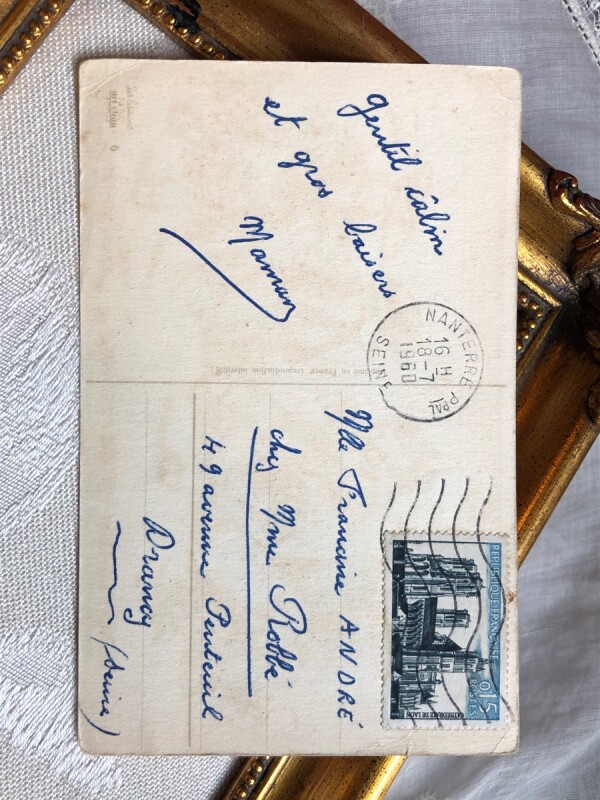 gentil câlin
et gros baisers
Maman
NANTERRE PPAL
16 H
18-7
1960
SEINE
REPUBLIQUE FRANCAISE
0,15
POSTES
CATHEDRALE DE LAON
Mlle Francine ANDRÉ
chez Mme Robbé
49 avenue
Drancy
(Seine)
en France (reproduction interdite)
6